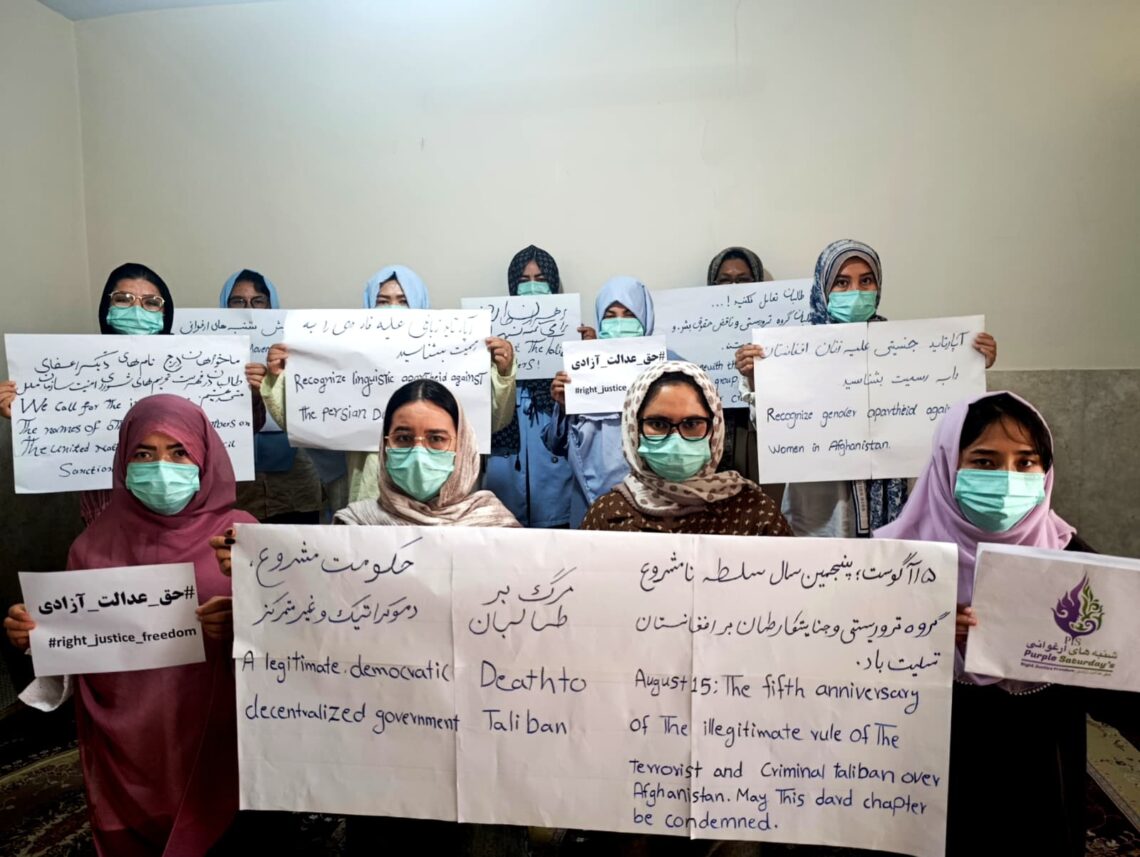 ما خواهان درج نام‌های دیگر اعضای
We call for the
The names of
mbers on
The united
Sanction
شنبه‌های ارغوانی
آپارتاید زبانی علیه فارسی را به
رسمیت بشناسید
Recognize linguistic apartheid against
the persian
#حق_عدالت_آزادی
#right_justice
طالبان تعامل نکنید!...
گروه تروریستی و ناقض حقوق بشر
آپارتاید جنسیتی علیه زنان افغانستان
را به رسمیت بشناسید
Recognize gender apartheid agai
Women in Afghanistan.
#حق_عدالت_آزادی
#right_justice_freedom
حکومت مشروع،
دموکراتیک و غیرمتمرکز
A legitimate. democratic
decentralized government
مرگ بر
طالبان
Death to
Taliban
۱۵ آگوست؛ پنجمین سال سلطه نامشروع
گروه تروریستی و جنایتکار طالبان بر افغانستان
تسلیت باد.
August 15: The fifth anniversary
of The illegitimate rule of The
terrorist and Criminal taliban over
Afghanistan. May This dard chapter
be condemned.
PIS
شنبه های ارغوانی
Purple Saturday's
Right Justice Freedom